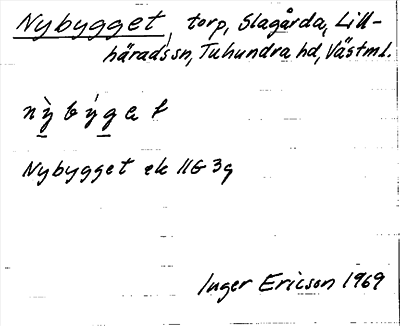 Nybygget, torp, Slagårda, Lill-
härads sn, Tuhundra hd, Västml.
nỳbýget
Nybygget ek 11G 3g
Inger Ericson 1969